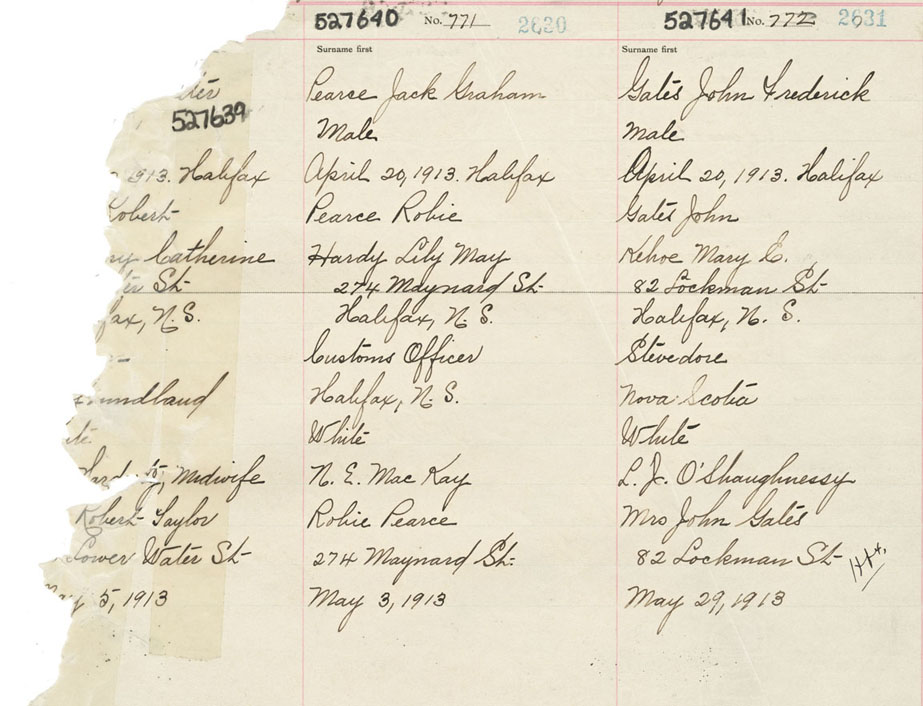 527639
1913. Halifax
Robert
Catherine
St
N.S.
Midwife
Robert Taylor
Lower Water St
5, 1913
527640 No. 771 2630
Surname first
Pearce Jack Graham
Male
April 20, 1913. Halifax
Pearce Robie
Hardy Lily May
274 Maynard St
Halifax, N.S.
Customs Officer
Halifax, N.S.
White
N. E. MacKay
Robie Pearce
274 Maynard St.
May 3, 1913
527641 No. 772 2631
Surname first
Gates John Frederick
Male
April 20, 1913. Halifax
Gates John
Kehoe Mary E.
82 Lockman St
Halifax, N.S.
Stevedore
Nova Scotia
White
L. J. O'Shaughnessy
Mrs John Gates
82 Lockman St
May 29, 1913